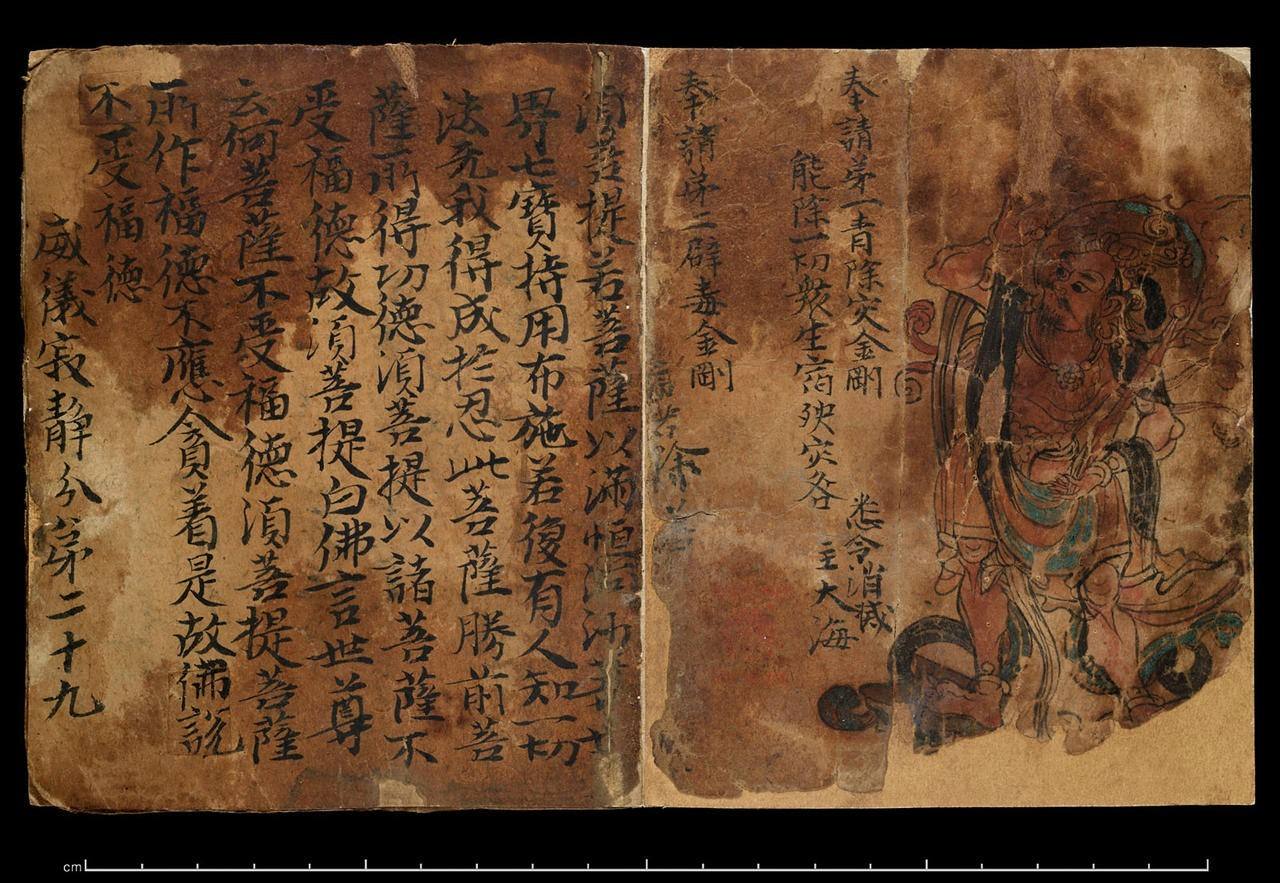 奉請第一青除灾金剛
能除一切衆生宿殃灾咎
悉令消滅
主大海
奉請第二辟毒金剛
除
須菩提若菩薩以滿恒河沙等世
界七寶持用布施若復有人知一切
法无我得成於忍此菩薩勝前菩
薩所得功德須菩提以諸菩薩不
受福德故須菩提白佛言世尊
云何菩薩不受福德須菩提菩薩
所作福德不應貪着是故佛說
不受福德
威儀寂静分第二十九
cm